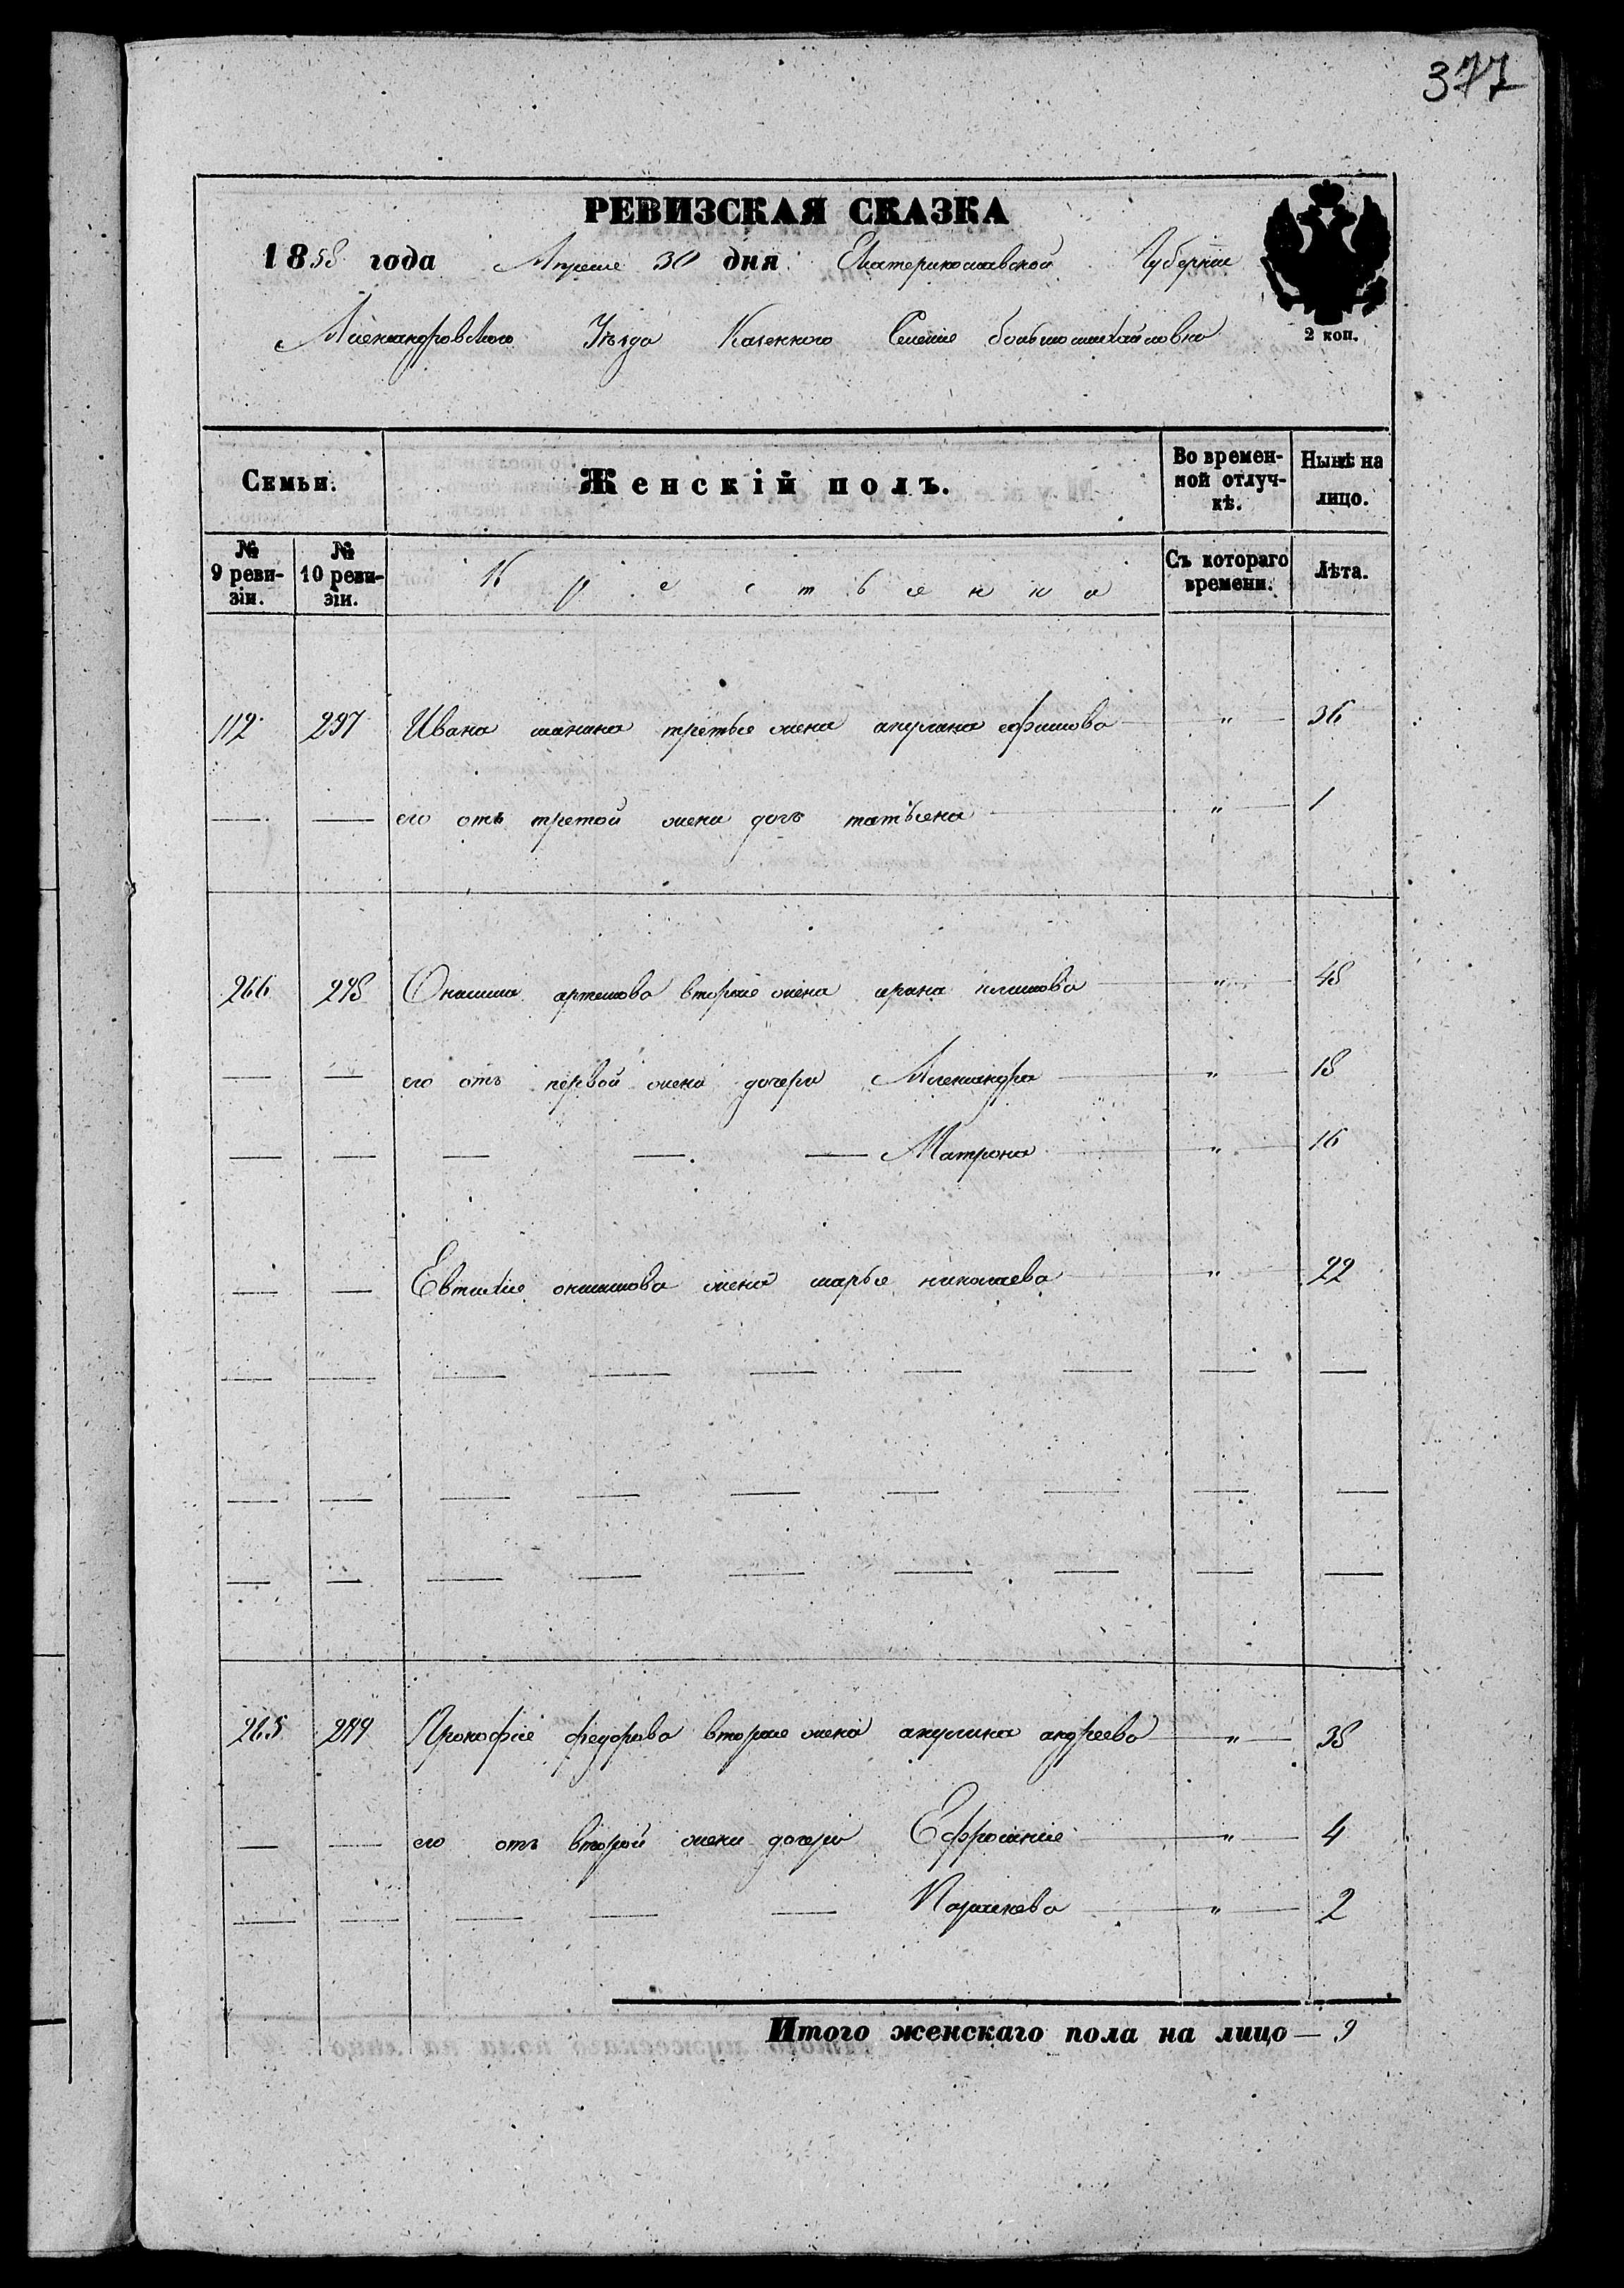 377
РЕВИЗСКАЯ СКАЗКА
1858 года Апреля 30 дня Екатеринославской Губернии
2 коп.
Александровского Уезда Казенного Селение большомихайловка
Семьи. Женскій полъ. Во временной отлучкѣ. Нынѣ на лицо.
№ 9 ревизіи. № 10 ревизіи. Крестьянка Съ котораго времени. Лѣта.
112 297 Ивана третье жена акулина ефимова " 36
— — его отъ третой жени дочь татьяна " 1
266 298 Онисима артемова вторые жена ирина климова " 48
— — его отъ первой жени дочери Александра " 18
— — — — — Матрона " 16
— — Евтихие онисимова жена марье николаева " 22
265 299 Прокофие федорова вторые жена акулина андреева " 38
— — его отъ второй жени дочери Ефросиние " 4
— — — — — Парасковя " 2
Итого женскаго пола на лицо — 9